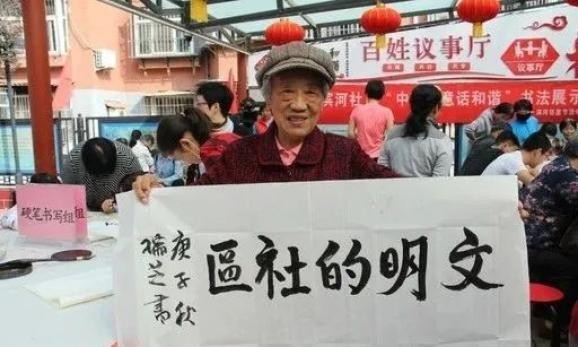 百姓议事厅
议事厅
滨河社 “中 童话和谐”书法展示
硬笔书写组
文明的社區
庚子秋
瑞芝書